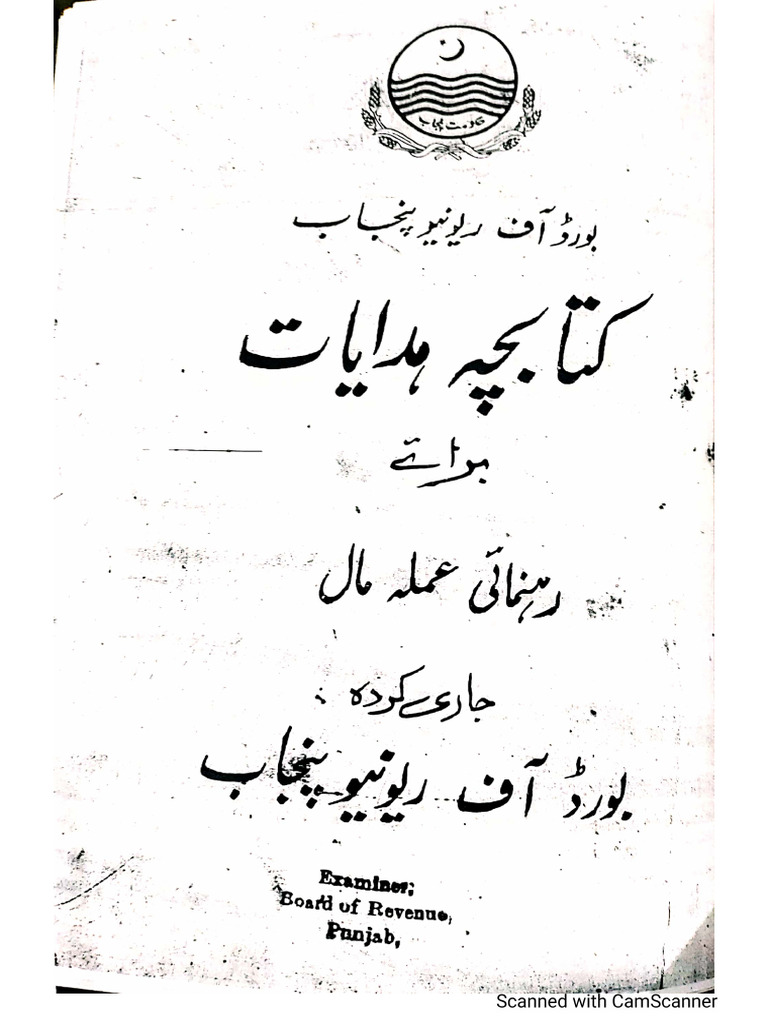 حکومت پنجاب
بورڈ آف ریونیو پنجاب
کتابچہ ہدایات
برائے
رہنمائی عملہ مال
جاری کردہ
بورڈ آف ریونیو پنجاب
Examiner,
Board of Revenue,
Punjab,
Scanned with CamScanner